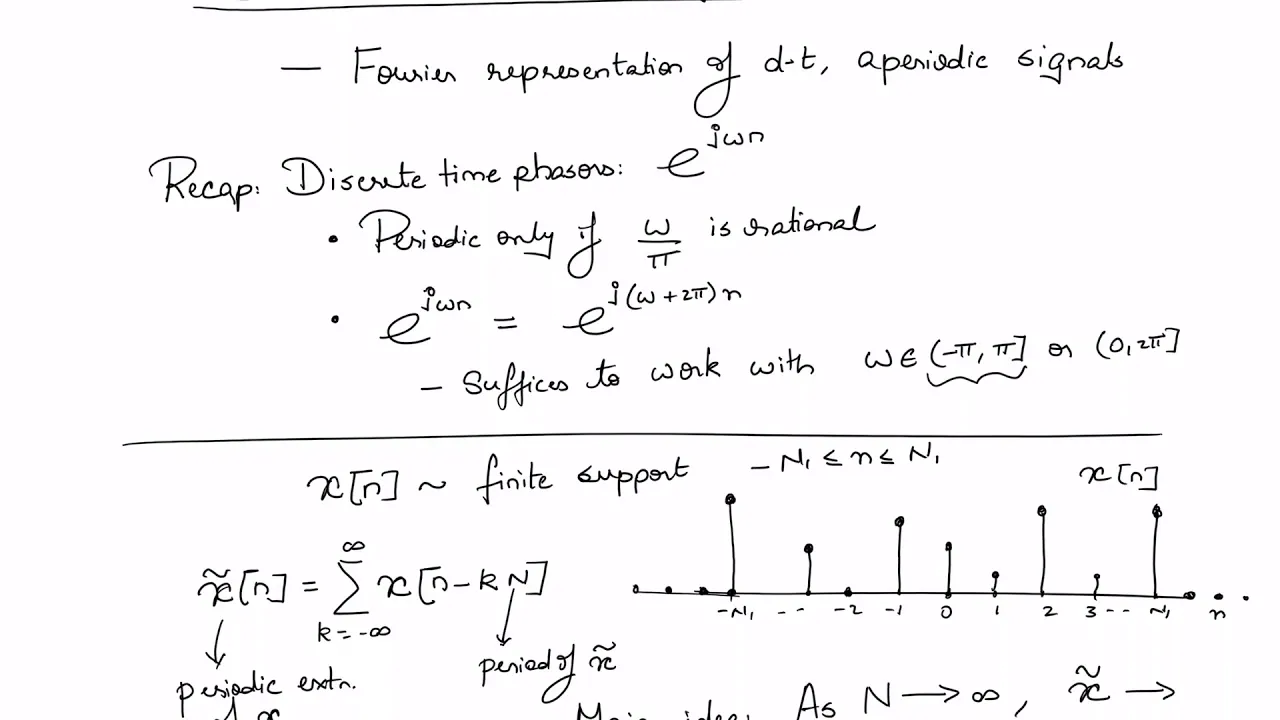 — Fourier representation of d-t, aperiodic signals
Recap: Discrete time phasors: e^{jωn}
• Periodic only if ω/π is rational
• e^{jωn} = e^{j(ω+2π)n}
– Suffices to work with ω ∈ (-π, π] or (0, 2π]
x[n] ~ finite support - N₁ ≤ n ≤ N₁
x[n]
x̃[n] = ∑_{k=-∞}^{∞} x[n-kN]
-N₁ -- -2 -1 0 1 2 3 -- N₁ n
period of x̃
periodic extn.
of x
Main idea: As N → ∞, x̃ →